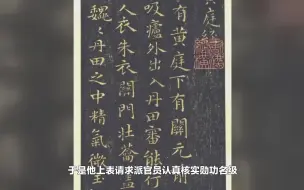 黄庭經
有黄庭下有關元前
吸廬外出入丹田審能行
人衣朱衣關門壯籥盖
魏〻丹田之中精氣微玉
于是他上表请求派官员认真核实勋功名级